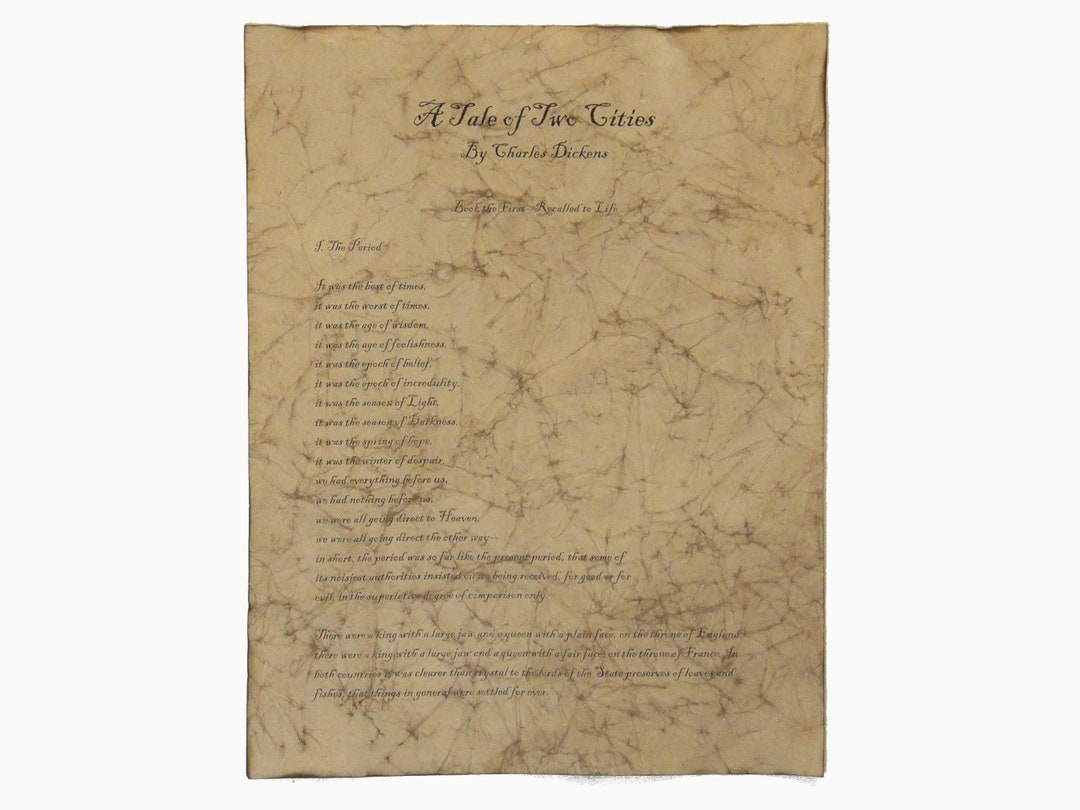 A Tale of Two Cities
By Charles Dickens
Book the First--Recalled to Life
I. The Period
It was the best of times,
it was the worst of times,
it was the age of wisdom,
it was the age of foolishness,
it was the epoch of belief,
it was the epoch of incredulity,
it was the season of Light,
it was the season of Darkness,
it was the spring of hope,
it was the winter of despair,
we had everything before us,
we had nothing before us,
we were all going direct to Heaven,
we were all going direct the other way--
in short, the period was so far like the present period, that some of
its noisiest authorities insisted on its being received, for good or for
evil, in the superlative degree of comparison only.
There were a king with a large jaw and a queen with a plain face, on the throne of England;
there were a king with a large jaw and a queen with a fair face, on the throne of France. In
both countries it was clearer than crystal to the lords of the State preserves of loaves and
fishes, that things in general were settled for ever.